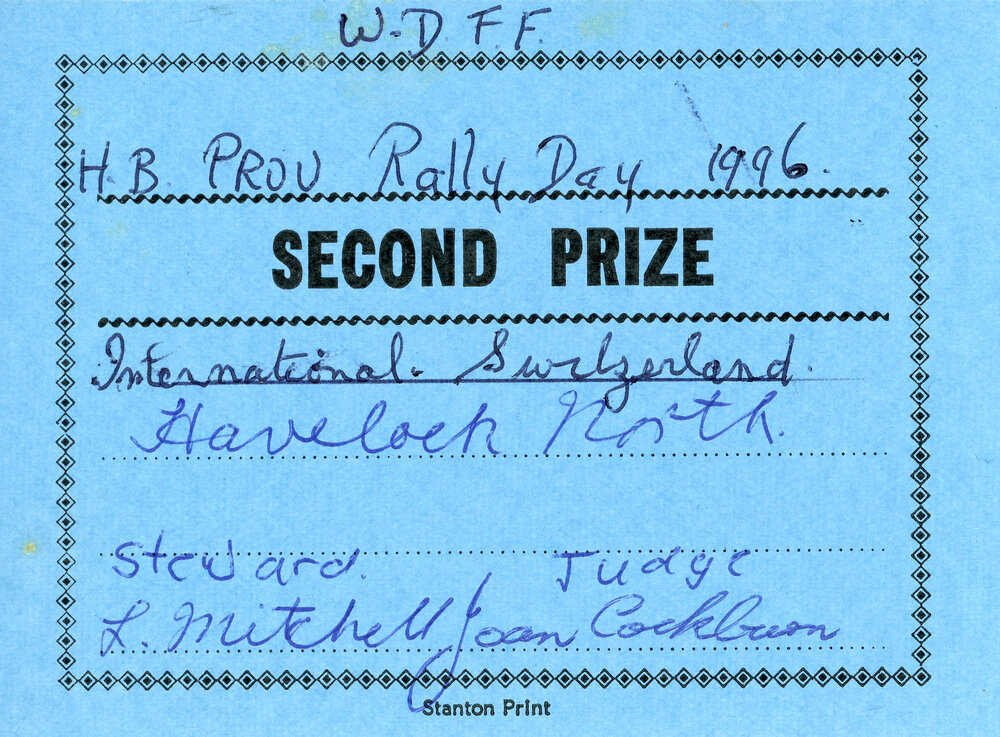 W-D F.F.
H.B. PROV Rally Day 1996.
SECOND PRIZE
International. Switzerland.
Havelock North.
Steward. Judge
L. Mitchell Joan Cockburn
Stanton Print